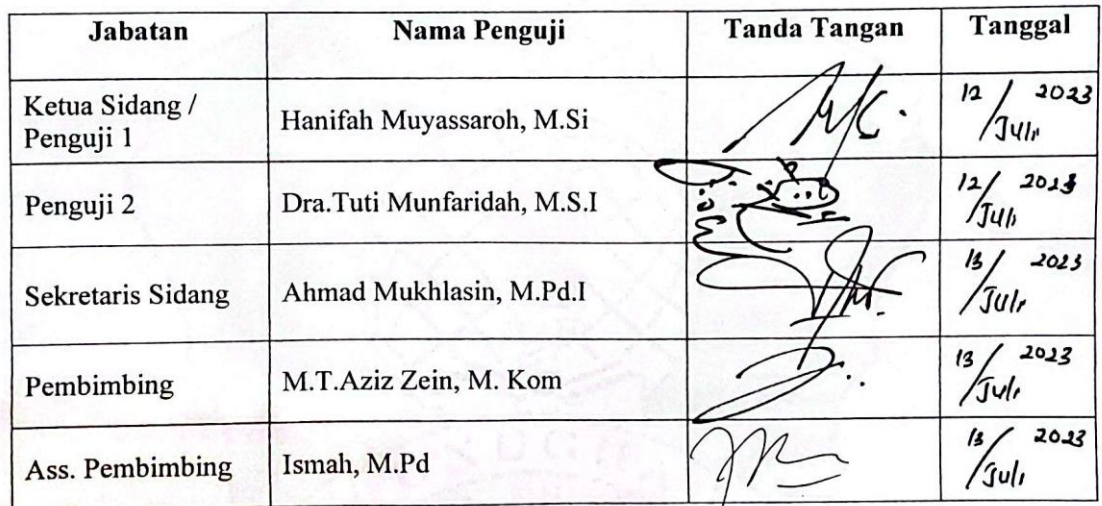 Jabatan Nama Penguji Tanda Tangan Tanggal
Ketua Sidang / Penguji 1 Hanifah Muyassaroh, M.Si 12 / Juli 2023
Penguji 2 Dra.Tuti Munfaridah, M.S.I 12 / Juli 2023
Sekretaris Sidang Ahmad Mukhlasin, M.Pd.I 13 / Juli 2023
Pembimbing M.T.Aziz Zein, M. Kom 13 / Juli 2023
Ass. Pembimbing Ismah, M.Pd 13 / Juli 2023